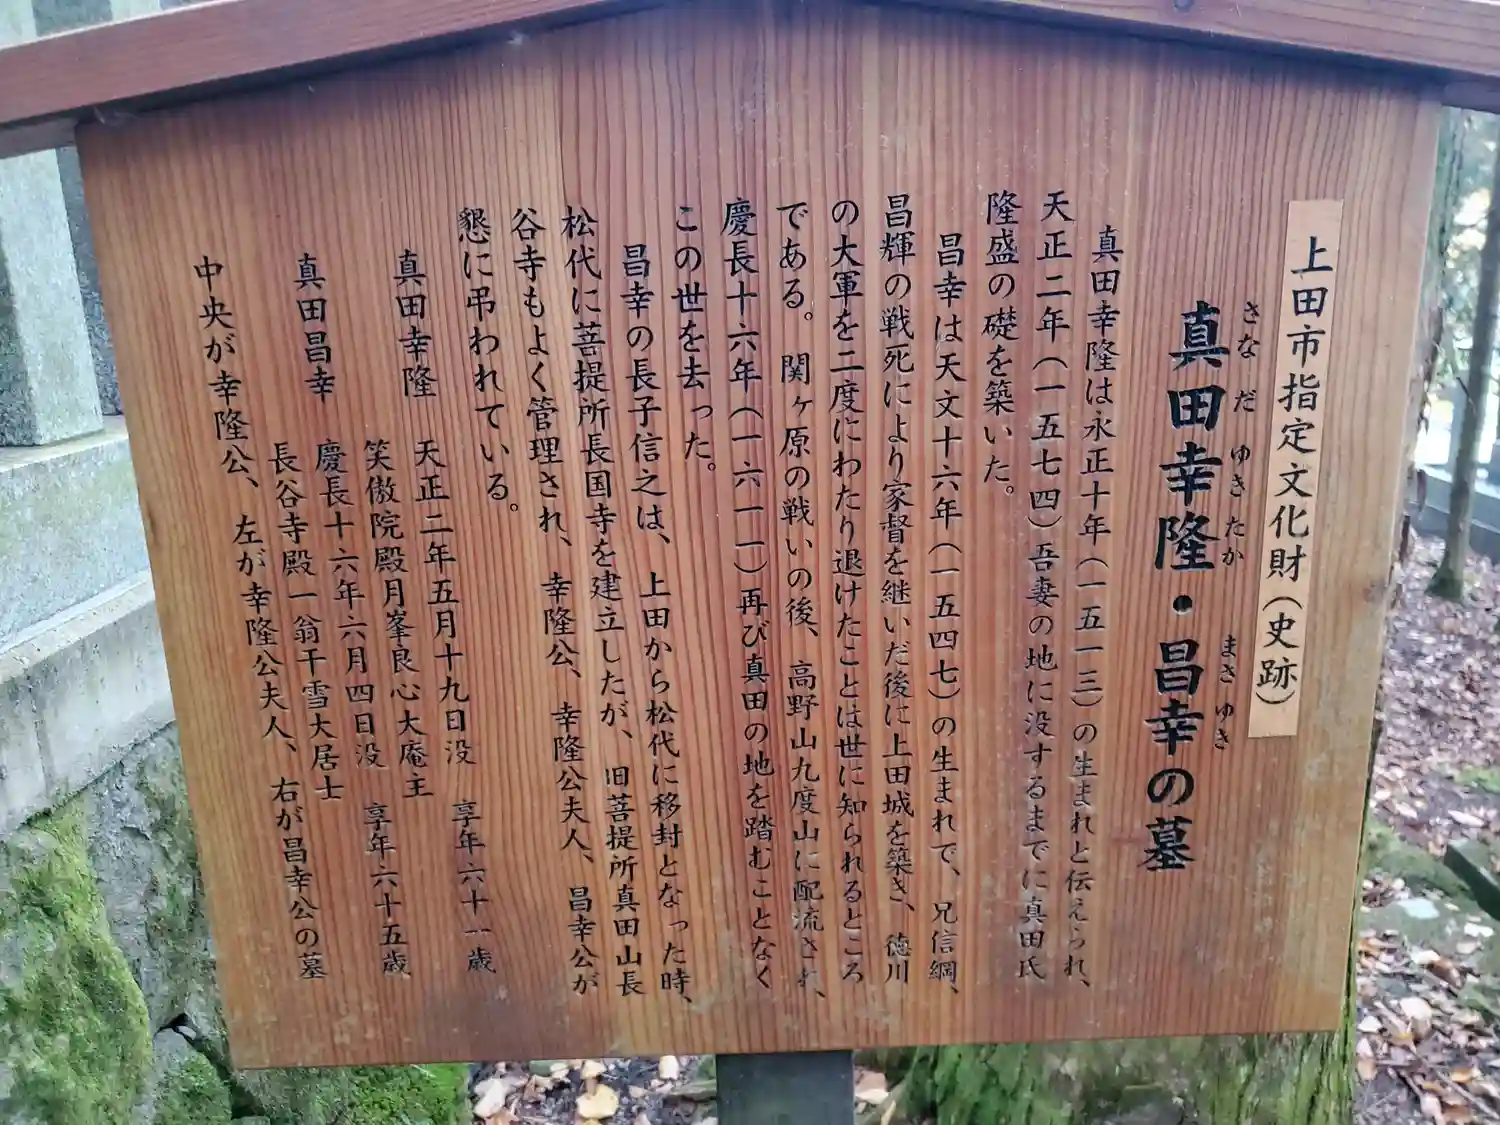 上田市指定文化財（史跡）
さなだゆきたか まさゆき
真田幸隆・昌幸の墓
真田幸隆は永正十年（一五一三）の生まれと伝えられ、
天正二年（一五七四）吾妻の地に没するまでに真田氏
隆盛の礎を築いた。
昌幸は天文十六年（一五四七）の生まれで、兄信綱、
昌輝の戦死により家督を継いだ後に上田城を築き、徳川
の大軍を二度にわたり退けたことは世に知られるところ
である。関ヶ原の戦いの後、高野山九度山に配流され、
慶長十六年（一六一一）再び真田の地を踏むことなく
この世を去った。
昌幸の長子信之は、上田から松代に移封となった時、
松代に菩提所長国寺を建立したが、旧菩提所真田山長
谷寺もよく管理され、幸隆公、幸隆公夫人、昌幸公が
懇に弔われている。
真田幸隆 天正二年五月十九日没 享年六十一歳
笑傲院殿月峯良心大庵主
真田昌幸 慶長十六年六月四日没 享年六十五歳
長谷寺殿一翁干雪大居士
中央が幸隆公、左が幸隆公夫人、右が昌幸公の墓